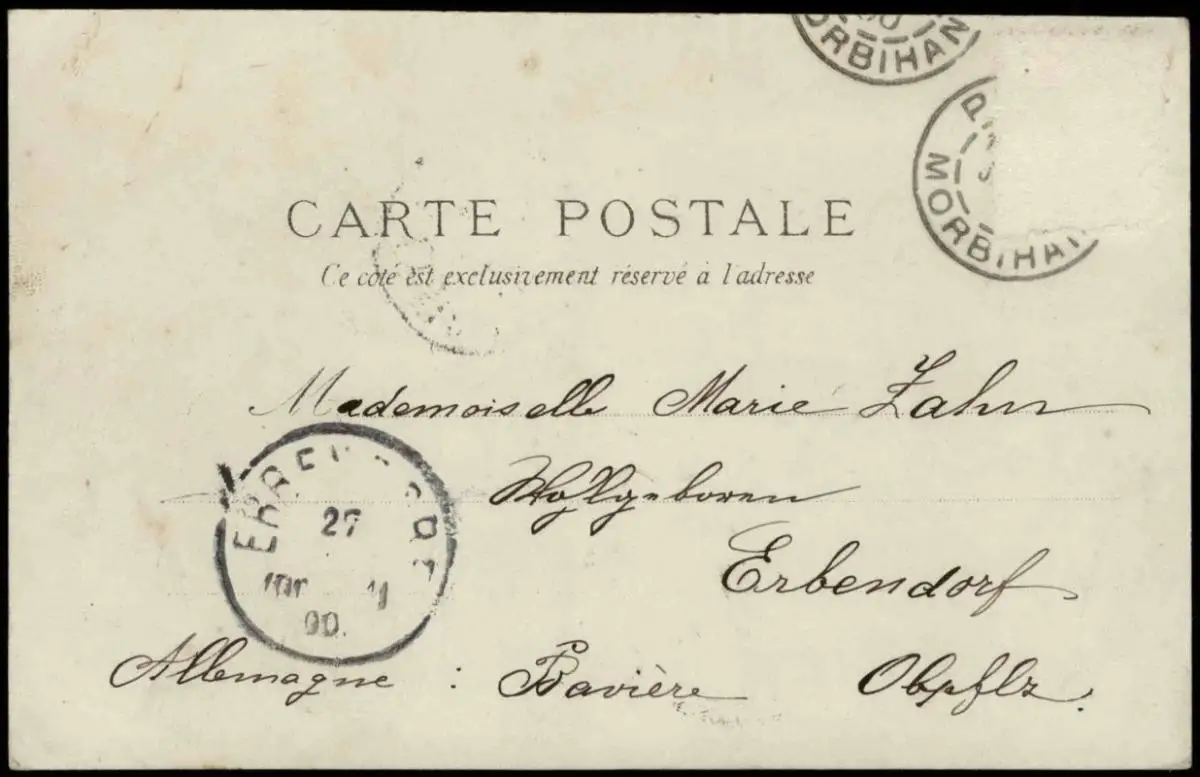 MORBIHAN
MORBIHAN
CARTE POSTALE
Ce côté est exclusivement réservé à l'adresse
Mademoiselle Marie Zahn
Wohlgeboren
Erbendorf
ERBENDORF
27
90.
Allemagne : Bavière Obpflz.